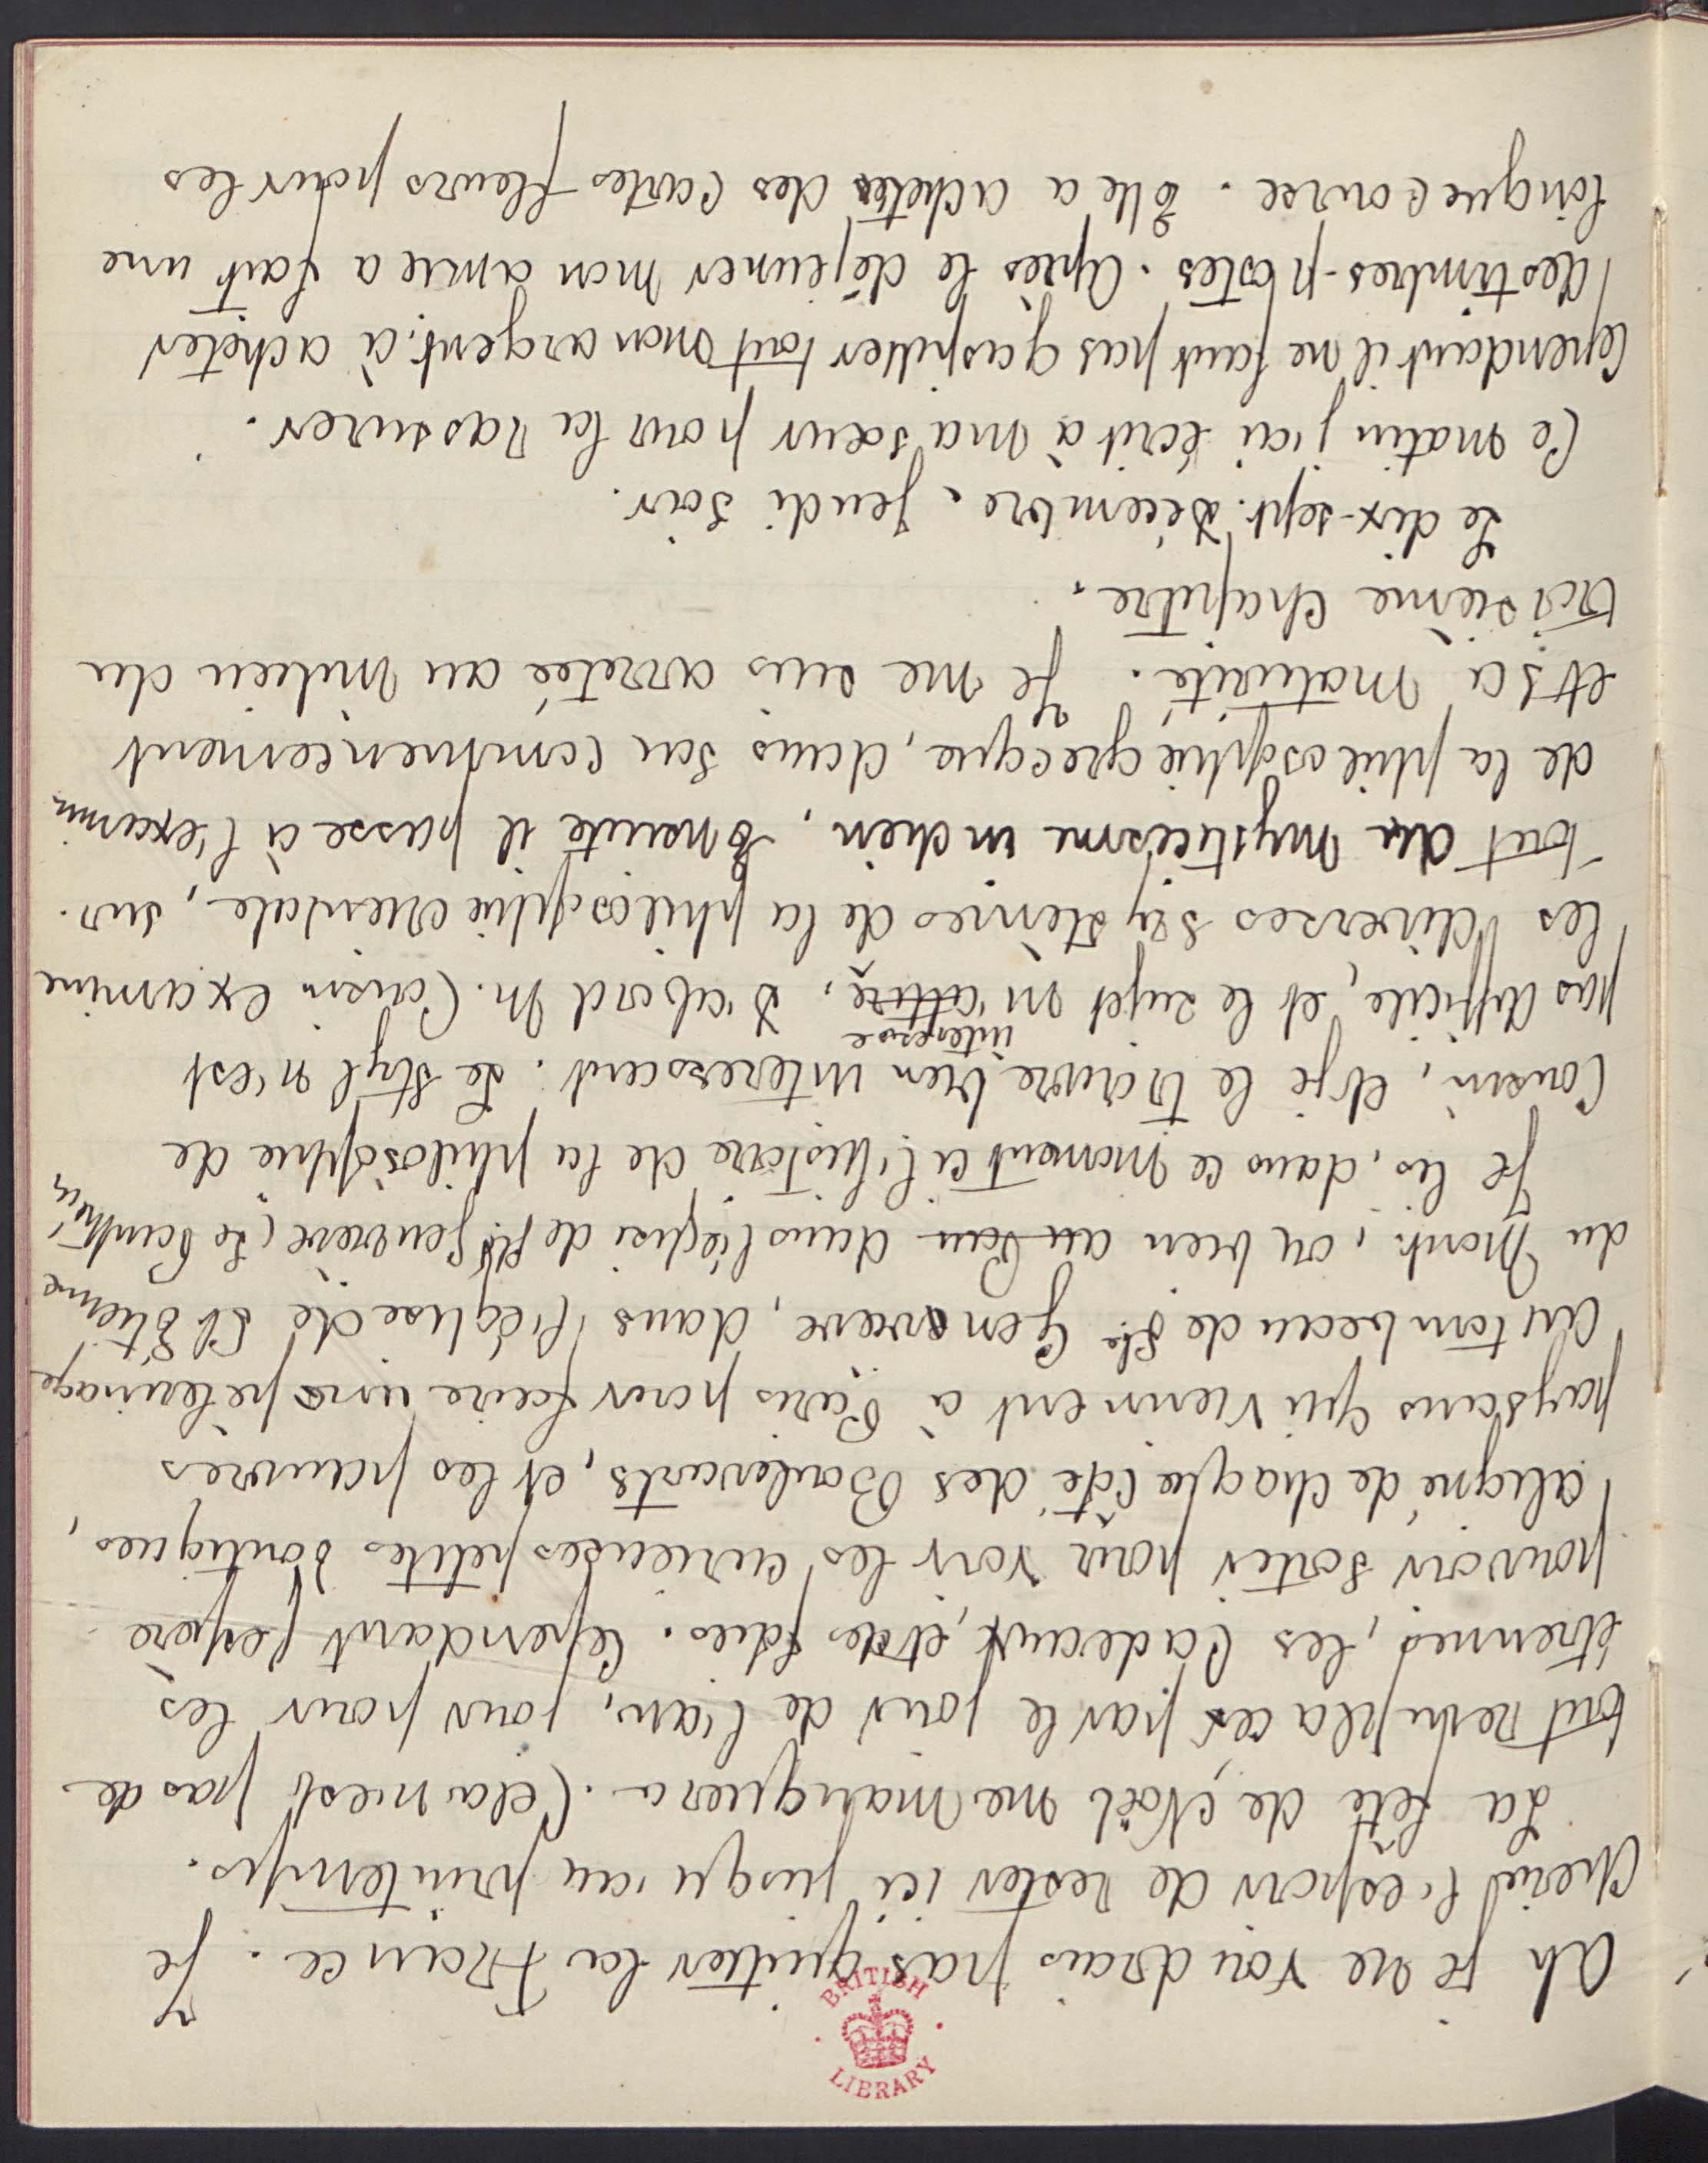 BRITISH LIBRARY
Ah je ne voudrais pas quitter la France. Je
cherid l'espoir de rester ici jusqu'au printemps.
La fête de Noël me manquera. Cela n'est pas de
tout remplacer par le jour de l'an, jour pour les
étrennes, les Cadeaux, et des fêtes. Cependant j'espère
pouvoir sortir pour voir les curieuses petites boutiques,
aligné de chaque côté des Boulevarts, et les pauvres
paysans qui viennent à Paris pour faire une pelerinage
au tombeau de Ste Genevieve, dans l'église de St Etienne
du Mont, ou bien au Pan dans l'église de Ste Genevieve (Le Panthéon
Je lis, dans ce moment ci l'histoire de la philosophie de
Cousin, et je le trouve bien interessant. Le styl n'est
interesse
pas difficile, et le sujet m'attire, D'abord M. Cousin examine
les diverses systèmes de la philosophie orientale, sur-
tout du mysticisme indien, Ensuite il passe à l'examin
de la philosophie grecque, dans son commencement
et sa maturité. Je me suis arretée au milieu du
troisième chapitre.
Le dix-sept. Décembre. Jeudi soir.
Ce matin j'ai écrit à ma sœur pour la rassurer.
Cependant il ne faut pas gaspiller tout mon argent à acheter
des timbres-postes. Après le déjeuner mon amie a fait une
longue course. Elle a acheter des cartes fleurs pour les